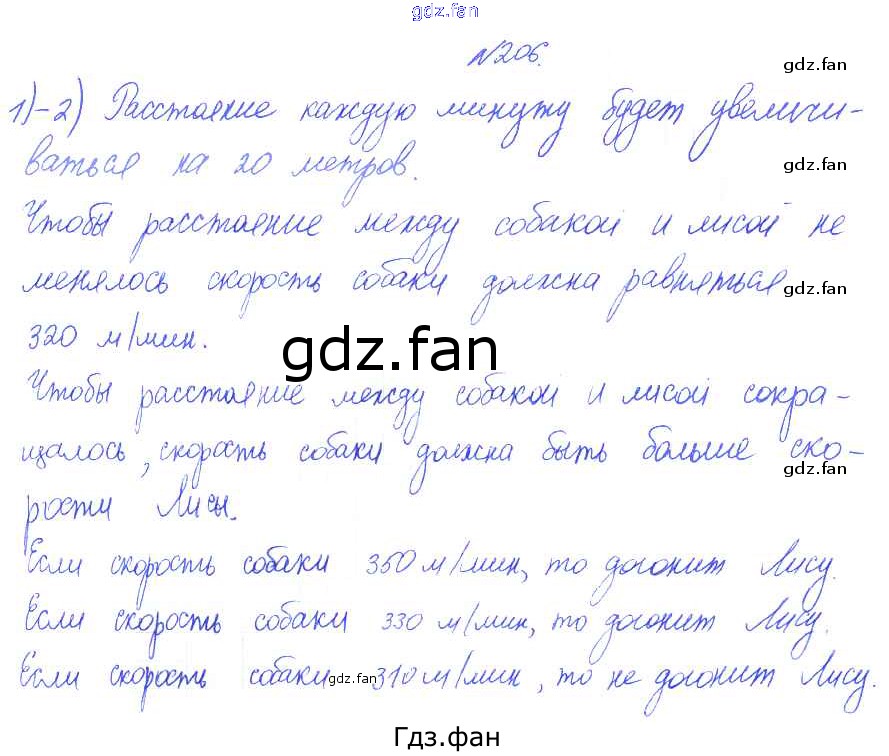 gdz.fan
№206.
gdz.fan
1)-2) Расстояние каждую минуту будет увеличи-
ваться на 20 метров.
gdz.fan
Чтобы расстояние между собакой и лисой не
менялось скорость собаки должна равняться
gdz.fan
320 м/мин.
gdz.fan
Чтобы расстояние между собакой и лисой сокра-
gdz.fan
щалось, скорость собаки должна быть больше ско-
gdz.fan
рости Лисы.
Если скорость собаки 350 м/мин, то догонит Лису.
Если скорость собаки 330 м/мин, то догонит Лису.
Если скорость собаки 310 м/мин, то не догонит Лису.
gdz.fan
Гдз.фан